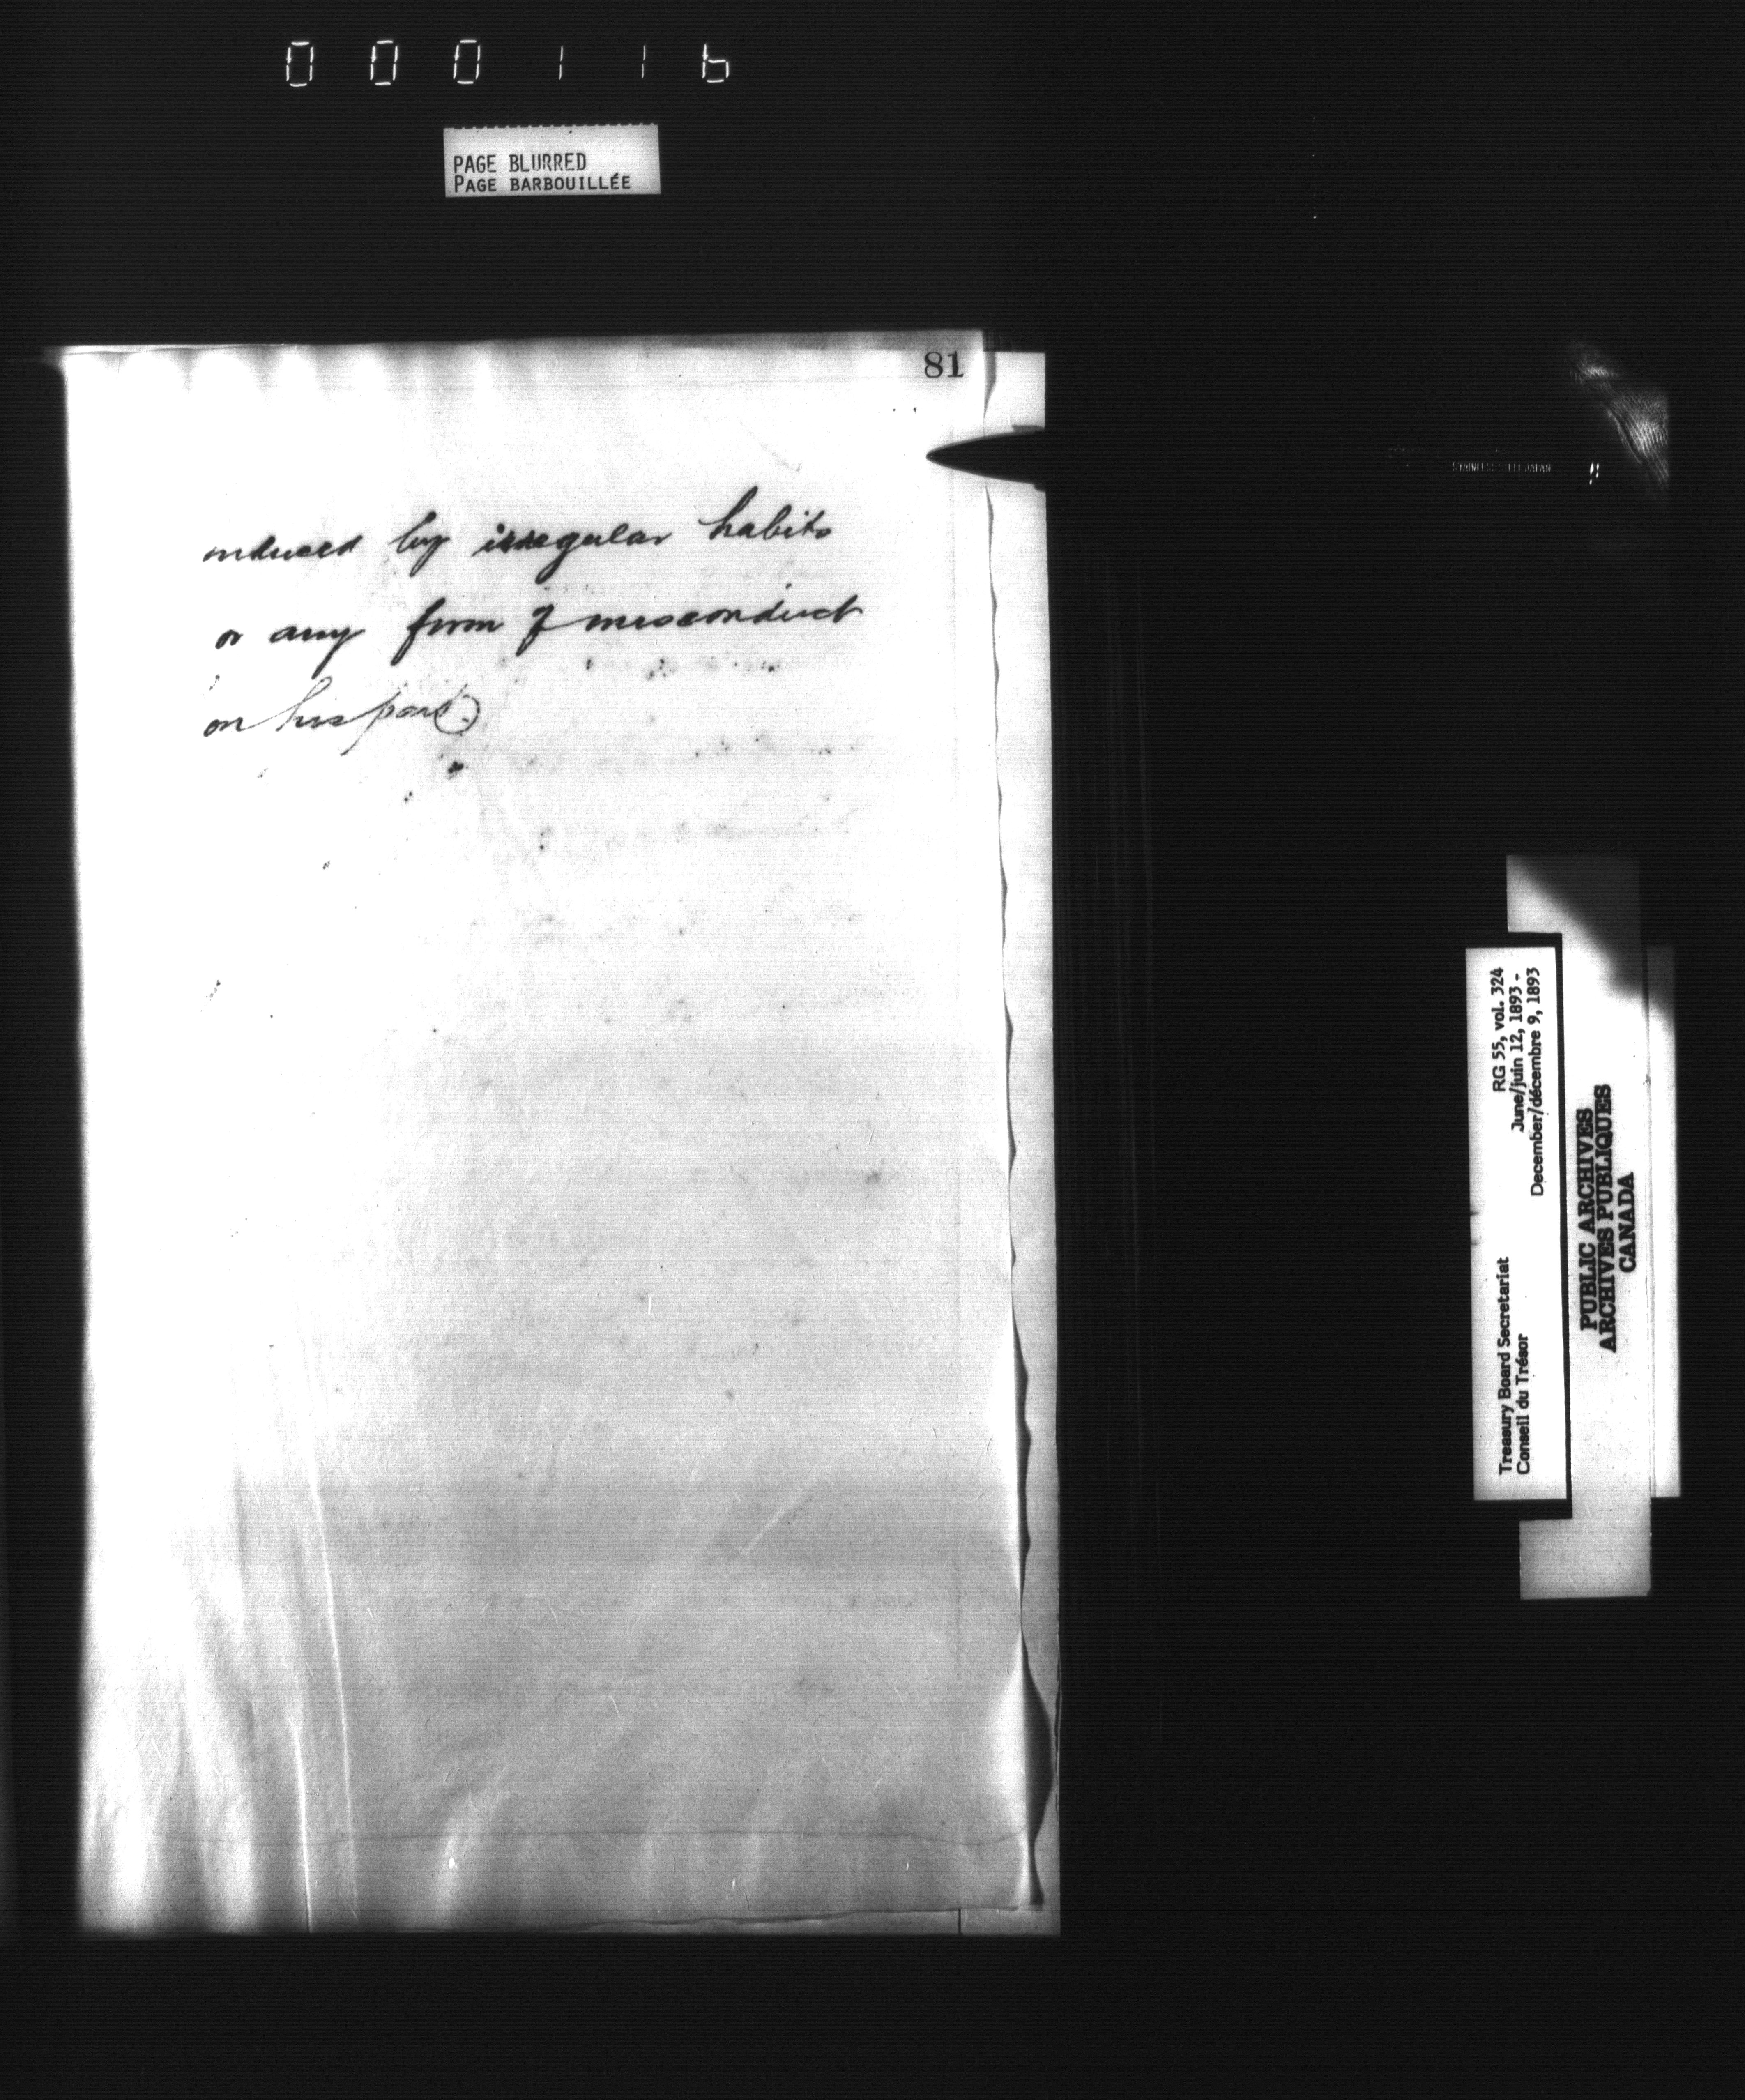 000116
PAGE BLURRED
PAGE BARBOUILLÉE
81
induced by irregular habits
or any form of misconduct
on his part.
STAINLESS STEEL JAPAN
RG 55, vol. 324
June/juin 12, 1893 -
December/décembre 9, 1893
Treasury Board Secretariat
Conseil du Trésor
PUBLIC ARCHIVES
ARCHIVES PUBLIQUES
CANADA